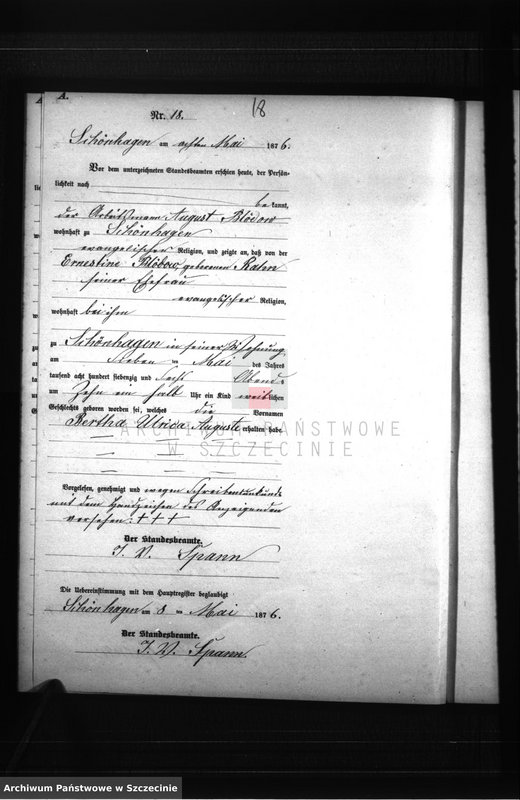 A.
18
Nr. 18.
Schönhagen am achten Mai 1876.
Vor dem unterzeichneten Standesbeamten erschien heute, der Persön-
lichkeit nach
bekannt,
der Arbeitsmann August Blödow
wohnhaft zu Schönhagen
evangelischer Religion, und zeigte an, daß von der
Ernestine Blödow, geborenen
seiner Ehefrau
evangelischer Religion,
wohnhaft bei ihm
zu Schönhagen in seiner Wohnung
am sieben ten Mai des Jahres
tausend acht hundert siebenzig und sechs Abends
um Zehn ein halb Uhr ein Kind weiblichen
Geschlechts geboren worden sei, welches die Vornamen
Bertha Ulrica Auguste erhalten habe.
ARCHIWUM PAŃSTWOWE
W SZCZECINIE
Vorgelesen, genehmigt und wegen Schreibensunkunde
mit dem Handzeichen des Anzeigenden
versehen: +++
Der Standesbeamte.
I. V. Spann
Die Uebereinstimmung mit dem Hauptregister beglaubigt
Schönhagen am 8 ten Mai 1876.
Der Standesbeamte.
I. V. Spann.
Archiwum Państwowe w Szczecinie